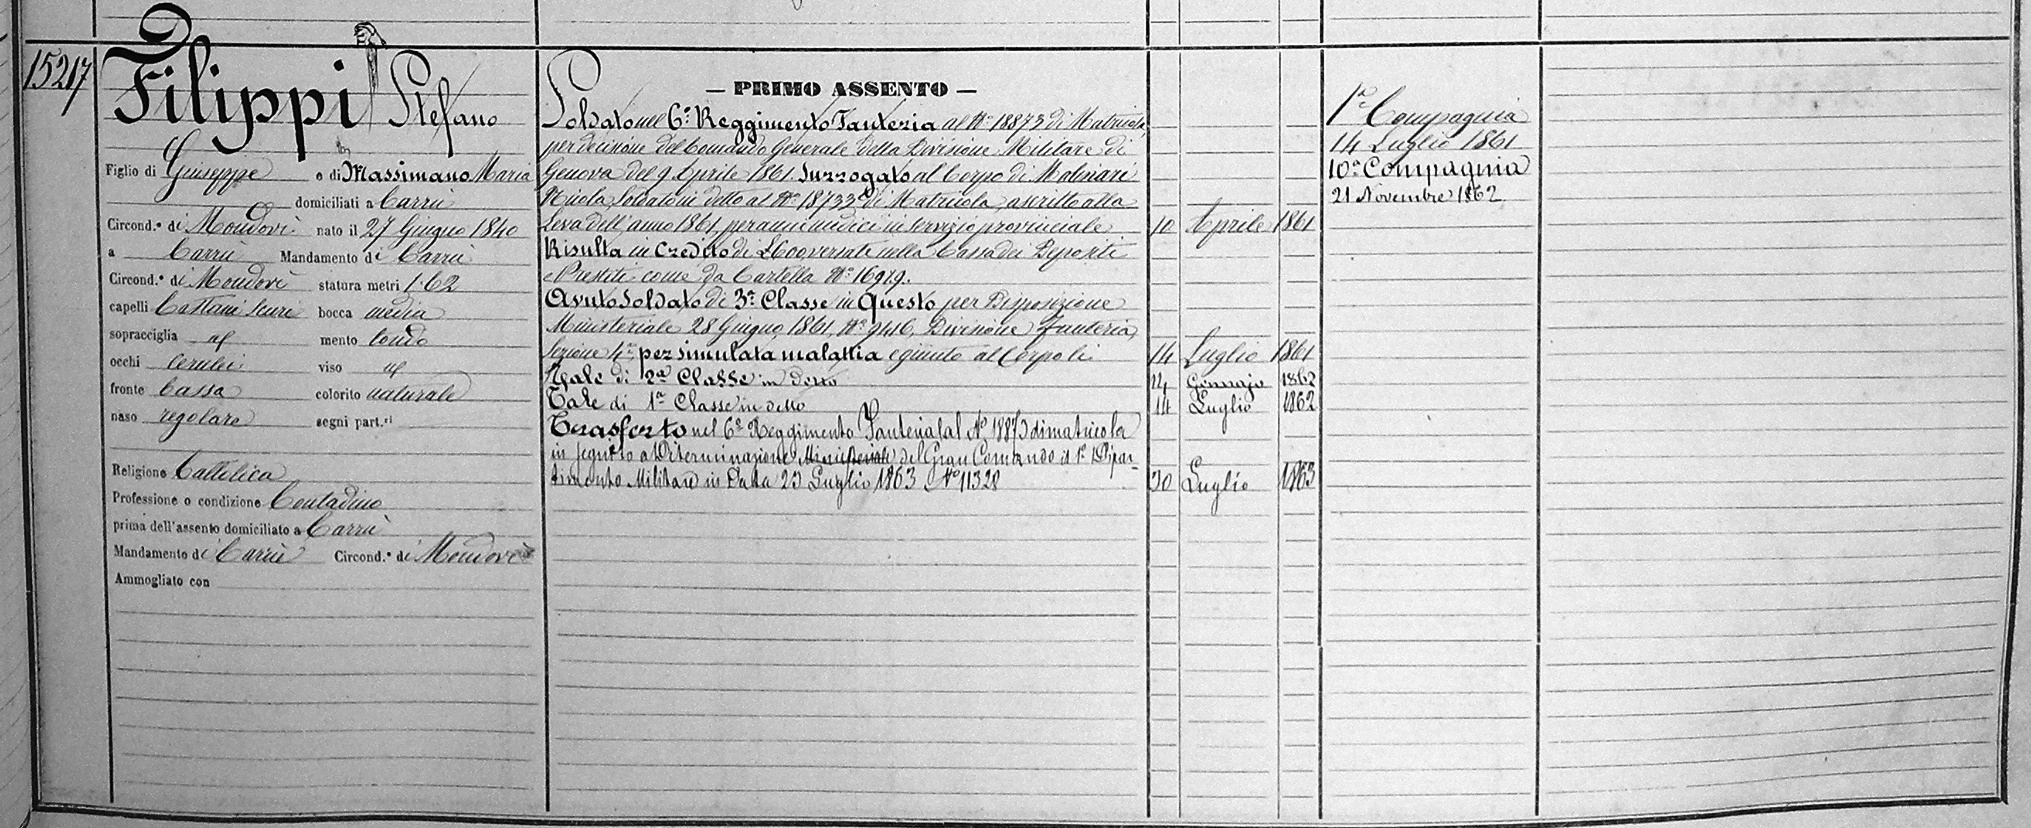 15217
Filippi Stefano
Figlio di Giuseppe e di Massimano Maria
domiciliati a Carrù
Circond.o di Mondovì nato il 27 Giugno 1840
a Carrù Mandamento di Carrù
Circond.o di Mondovì statura metri 1.62
capelli Castani scuri bocca media
sopracciglia id mento tondo
occhi cerulei viso id
fronte bassa colorito naturale
naso regolare segni part.ri
Religione Cattolica
Professione o condizione Contadino
prima dell'assento domiciliato a Carrù
Mandamento di Carrù Circond.o di Mondovì
Ammogliato con
— PRIMO ASSENTO —
Soldato nel 6.o Reggimento Fanteria al N.o 18873 di Matricola
per decisione del Comando Generale della Divisione Militare di
Genova del 9 Aprile 1861 Surrogato al Corpo di Molinari
Nicola Soldato in detto al N.o 18733 di Matricola, ascritto alla
Leva dell'anno 1861, per anni undici in servizio provinciale 10 Aprile 1861
Risulta in Credito di versate nella Cassa dei Depositi
e Prestiti come da Cartella N.o 16979.
Avuto Soldato di 3.a Classe in Questo per Disposizione
Ministeriale 28 Giugno 1861 N.o 9416, Divisione Fanteria,
Sezione 4.a, per simulata malattia e giunto al Corpo li 14 Luglio 1861
Tale di 2.a Classe in detto 14 Gennajo 1862
Tale di 1.a Classe in detto 14 Luglio 1862
Trasferto nel 6.o Reggimento Fanteria (al N.o 18873 di matricola
in seguito a Determinazione Ministeriale del Gran Comando il 1.o Dipar-
timento Militare in Data 23 Luglio 1863 N.o 11328 30 Luglio 1863
1.a Compagnia
14 Luglio 1861
10.a Compagnia
21 Novembre 1862